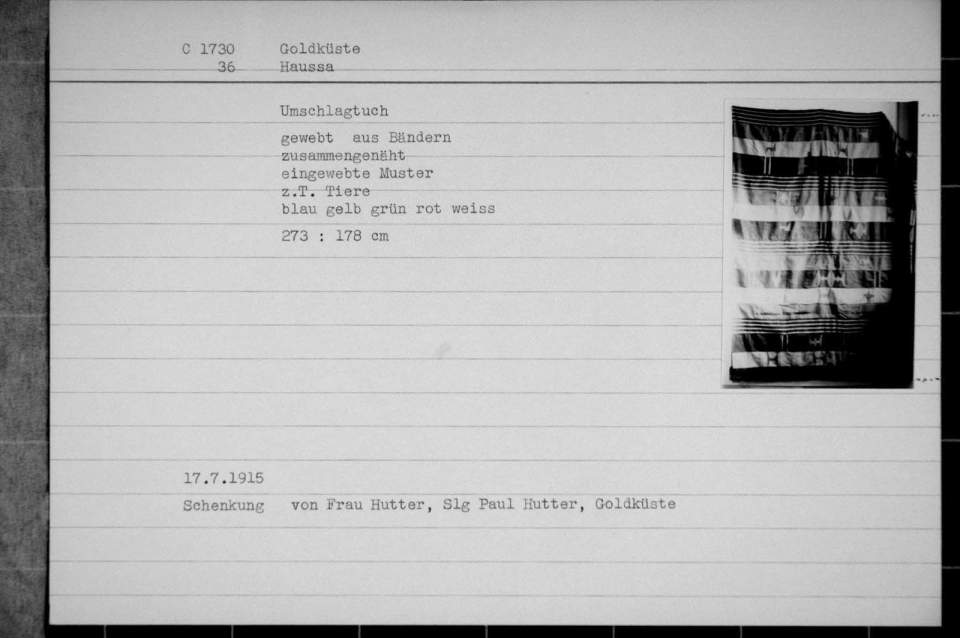 C 1730 Goldküste
36 Haussa
Umschlagtuch
gewebt aus Bändern
zusammengenäht
eingewebte Muster
z.T. Tiere
blau gelb grün rot weiss
273 : 178 cm
17.7.1915
Schenkung von Frau Hutter, Slg Paul Hutter, Goldküste